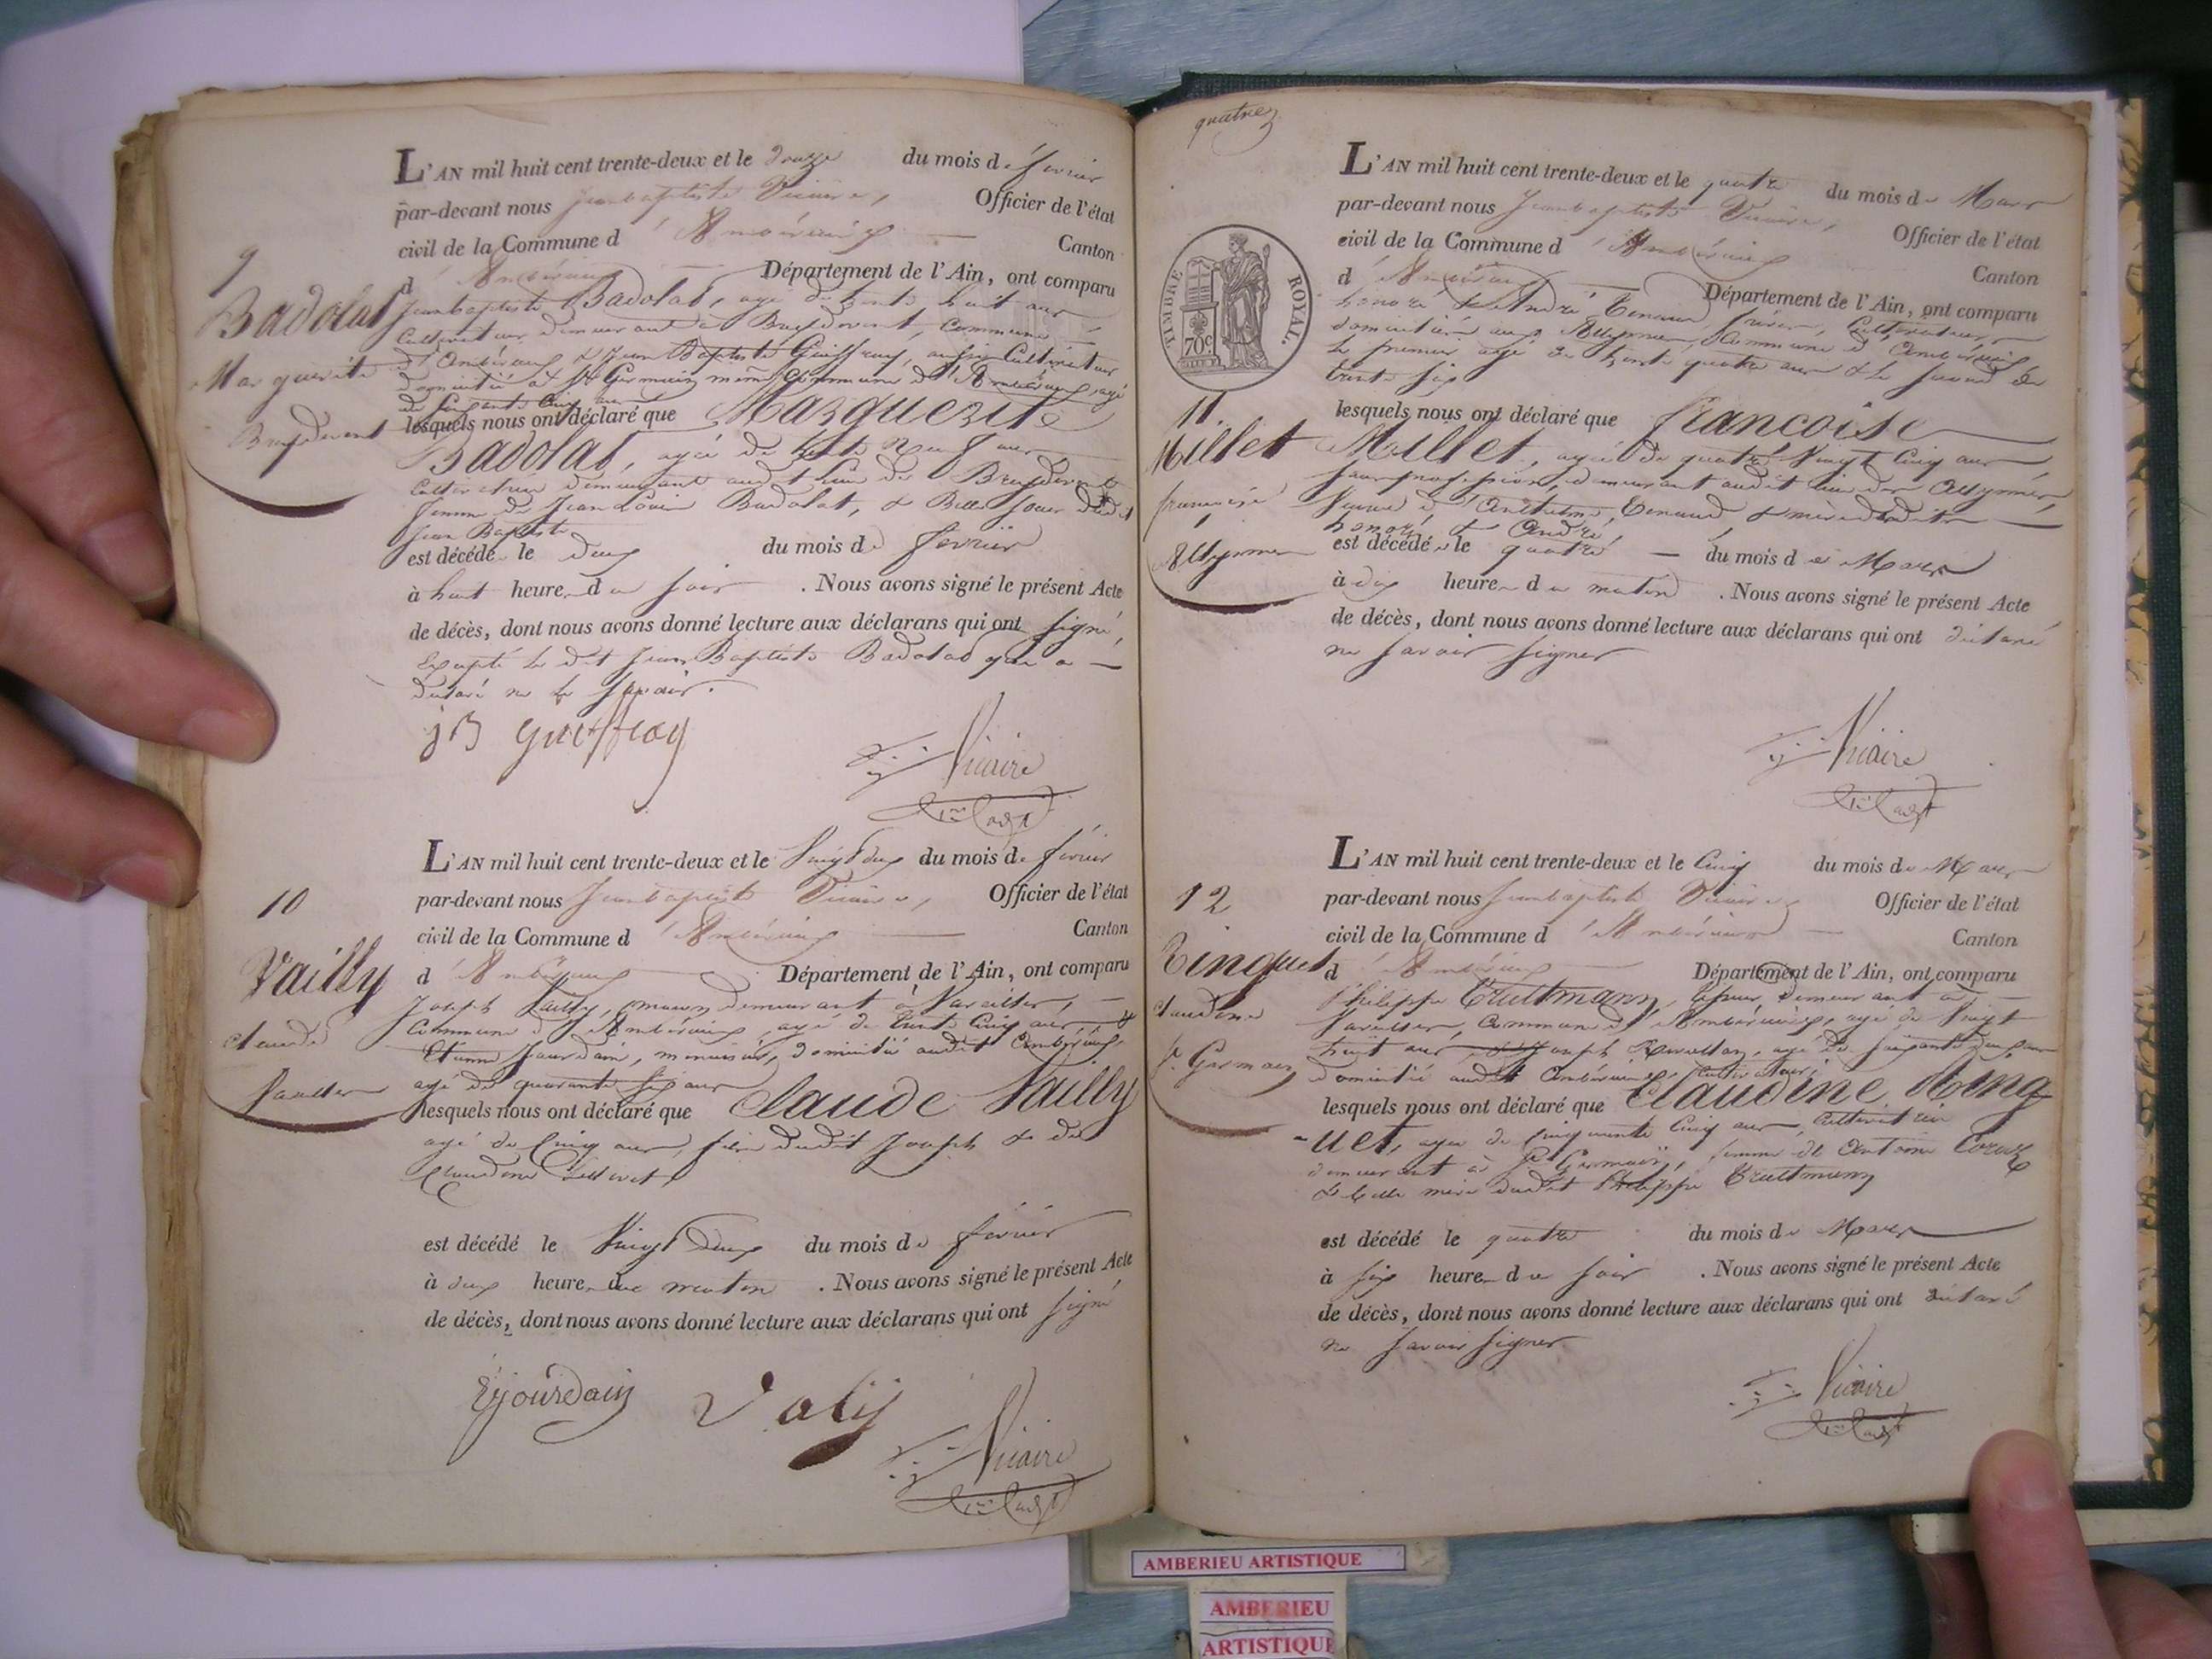 L'AN mil huit cent trente-deux et le douze du mois de février
par-devant nous Jeanbaptiste Vicaire, Officier de l'état
civil de la Commune d'Ambérieux Canton
d'Ambérieux Département de l'Ain, ont comparu
Jeanbaptiste Badolat, agé de trente huit ans
Cultivateur demeurant à Breydevent, commune
d'Ambérieux & Jean Baptiste Guiffray, aussi Cultivateur
domicilié à St Germain même Commune d'Ambérieux, agé
de soixante cinq ans
lesquels nous ont déclaré que Marguerite
Badolat, agée de trente neuf ans,
Cultivatrice demeurant audit lieu de Breydevent
femme de Jean Louis Badolat, & Belle soeur dudit
Jean Baptiste
est décédée le deux du mois de février
à huit heures du soir. Nous avons signé le présent Acte
de décès, dont nous avons donné lecture aux déclarans qui ont signé,
Excepté le dit Jean Baptiste Badolat qui a
declaré ne le savoir.
9
Badolat
Marguerite
Breydevent
JB guiffray
Vicaire
L'AN mil huit cent trente-deux et le Vingt deux du mois de février
par-devant nous Jeanbaptiste Vicaire, Officier de l'état
civil de la Commune d'Ambérieux Canton
d'Ambérieux Département de l'Ain, ont comparu
Joseph Vailly, maçon demeurant à Vareilles,
Commune d'Ambérieux, agé de trente cinq ans &
Etienne Jourdain, menuisier, domicilié audit Ambérieux,
agé de quarante six ans
lesquels nous ont déclaré que Claude Vailly
agé de Cinq ans, fils dudit Joseph & de
Claudine
est décédé le Vingt deux du mois de février
à deux heures du matin. Nous avons signé le présent Acte
de décès, dont nous avons donné lecture aux déclarans qui ont signé
10
Vailly
claude
E jourdain
Valy
Vicaire
quatre
TIMBRE ROYAL.
70c
L'AN mil huit cent trente-deux et le quatre du mois de Mars
par-devant nous Jeanbaptiste Vicaire, Officier de l'état
civil de la Commune d'Ambérieux Canton
d'Ambérieux Département de l'Ain, ont comparu
honoré & André Tenand frères, Cultivateurs,
domiciliés aux Allymes, Commune d'Ambérieux
le premier agé de trente quatre ans & le second de
trente six
lesquels nous ont déclaré que françoise
Millet, agée de quatre Vingt Cinq ans
sans profession, demeurant audit lieu des Allymes,
Veuve d'Anthelme Tenand, & mère desdits
honoré & André
est décédée le quatre du mois de Mars
à dix heures du matin. Nous avons signé le présent Acte
de décès, dont nous avons donné lecture aux déclarans qui ont déclaré
ne savoir signer
11
Millet
françoise
Allymes
Vicaire
L'AN mil huit cent trente-deux et le Cinq du mois de Mars
par-devant nous Jeanbaptiste Vicaire Officier de l'état
civil de la Commune d'Ambérieux Canton
d'Ambérieux Département de l'Ain, ont comparu
Philippe Truttmann, demeurant à
Vareilles, Commune d'Ambérieux, agé de Vingt
huit ans & Joseph agé de soixante deux ans
domicilié audit Ambérieux, Cultivateur,
lesquels nous ont déclaré que Claudine Ring
uet, agée de cinquante Cinq ans, Cultivatrice
demeurant à St Germain, femme de Antoine
& belle mère dudit Philippe Truttmann
est décédé le quatre du mois de Mars
à six heures du soir. Nous avons signé le présent Acte
de décès, dont nous avons donné lecture aux déclarans qui ont déclaré
ne savoir signer
12
Ringuet
claudine
St Germain
Vicaire
AMBERIEU ARTISTIQUE
AMBERIEU
ARTISTIQUE